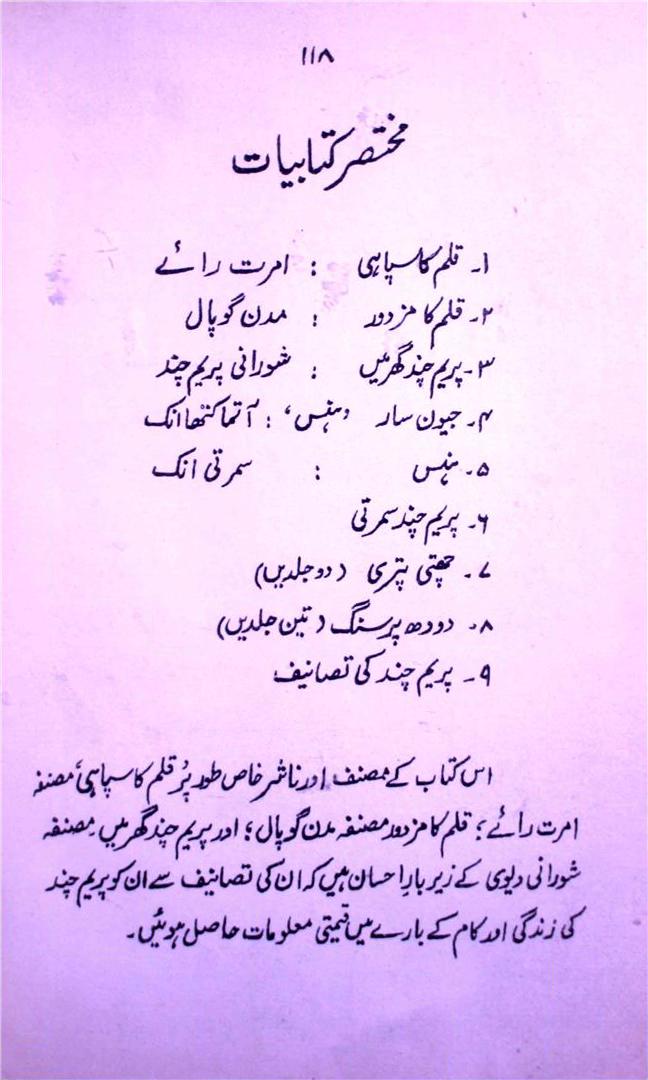 ۱۱۸
مختصر کتابیات
۱۔ قلم کا سپاہی : امرت رائے
۲۔ قلم کا مزدور : مدن گوپال
۳۔ پریم چند گھر میں : شورانی پریم چند
۴۔ جیون سار ’ہنس‘ : آتما کتھا انک
۵۔ ہنس : سمرتی انک
۶۔ پریم چند سمرتی
۷۔ چھٹی پتری (دو جلدیں)
۸۔ وودھ پرسنگ (تین جلدیں)
۹۔ پریم چند کی تصانیف
اس کتاب کے مصنف اور ناشر خاص طور پر قلم کا سپاہی‘ مصنفہ
امرت رائے؛ قلم کا مزدور مصنفہ مدن گوپال؛ اور پریم چند گھر میں مصنفہ
شورانی دیوی کے زیر بارِ احسان ہیں کہ ان کی تصانیف سے ان کو پریم چند
کی زندگی اور کام کے بارے میں قیمتی معلومات حاصل ہوئیں۔